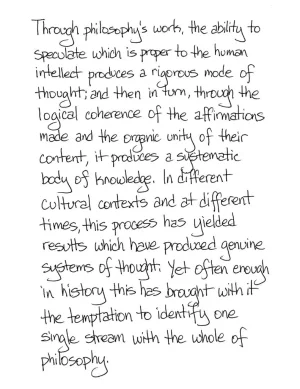 Through philosophy's work, the ability to
speculate which is proper to the human
intellect produces a rigorous mode of
thought; and then in turn, through the
logical coherence of the affirmations
made and the organic unity of their
content, it produces a systematic
body of knowledge. In different
cultural contexts and at different
times, this process has yielded
results which have produced genuine
systems of thought. Yet often enough
in history this has brought with it
the temptation to identify one
single stream with the whole of
philosophy.